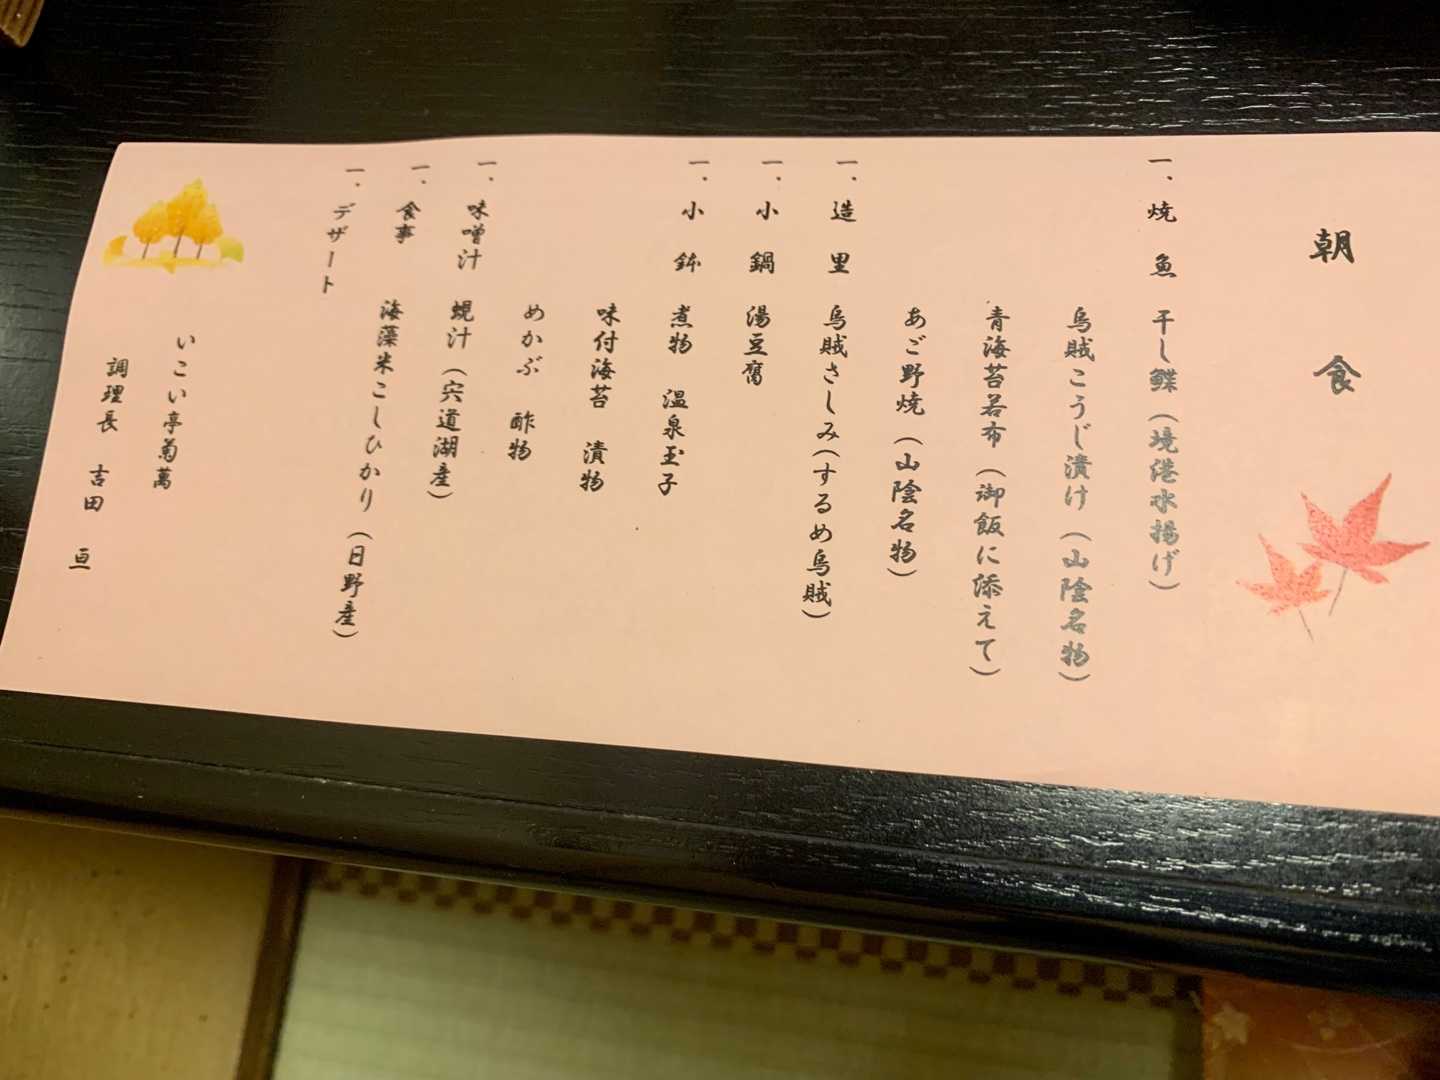 朝食
一、焼魚 干し鰈（境港水揚げ）
烏賊こうじ漬け（山陰名物）
青海苔若布（御飯に添えて）
あご野焼（山陰名物）
一、造里 烏賊さしみ（するめ烏賊）
一、小鍋 湯豆腐
一、小鉢 煮物 温泉玉子
味付海苔 漬物
めかぶ 酢物
一、味噌汁 蜆汁（宍道湖産）
一、食事 海藻米こしひかり（日野産）
一、デザート
いこい亭菊萬
調理長 吉田 亘